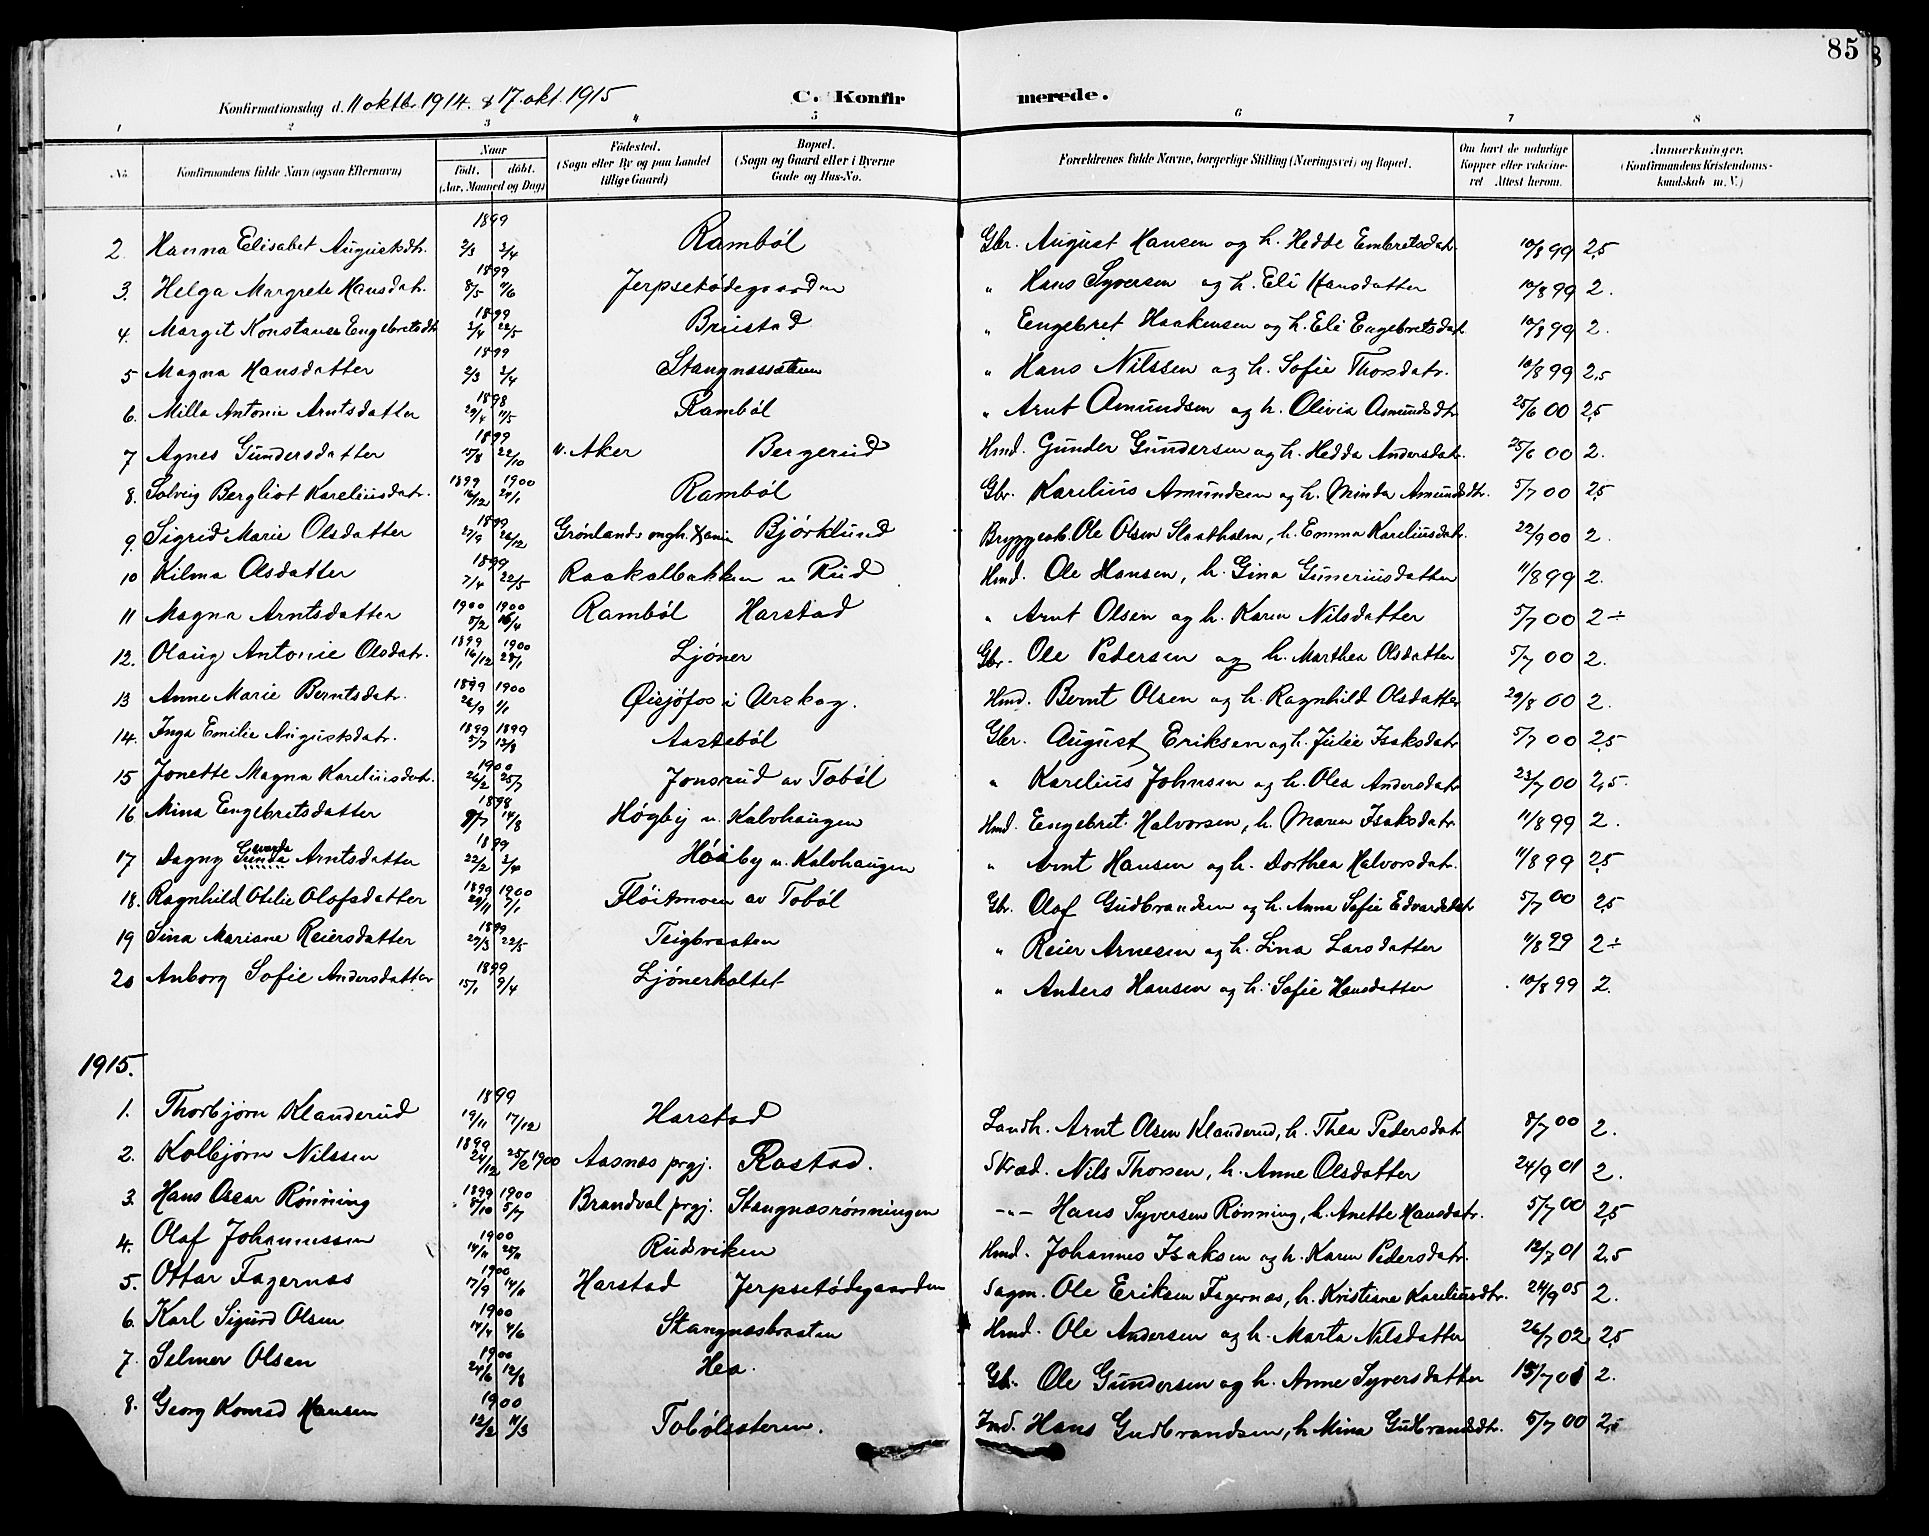 85
Konfirmationsdag d. 11 oktbr. 1914. & 17. okt. 1915 C. Konfirmerede.
1 2 3 4 5 6 7 8
No. Konfirmandens fulde Navn (ogsaa Efternavn) Naar født. døbt. (Aar, Maaned og Dag) Fødested. (Sogn eller By og paa Landet tillige Gaard) Bopæl. (Sogn og Gaard eller i Byerne Gade og Hus-No. Forældrenes fulde Navne, borgerlige Stilling (Næringsvei) og Bopæl. Om havt de naturlige Kopper eller vaccineret Attest herom. Anmærkninger. (Konfirmandens Kristendomskundskab m. V.)
1899
2. Hanna Elisabet Augustsdtr. 2/3 2/4 Ramböl Gbr. August Hansen og h. Hedde Embretsdatr. 10/8 99 2,5
1899
3. Helga Margrete Hansdatr. 8/5 11/6 Jerpsetödegaarden " Hans Syversen og h. Eli Hansdatter 10/8 99 2.
1899
4. Margit Konstanse Engebretsdtr. 2/4 22/5 Brustad " Engebret Haakensen og h. Eli Engebretsdatr. 10/8 99 2.
1899
5 Magna Hansdatter 2/3 2/4 Stangnessæteren " Hans Nilssen og h. Sofie Thorsdatr. 10/8 99 2,5
1898
6. Milla Antonie Arntsdatter 29/4 11/5 Ramböl " Arnt Amundsen og h. Olivia Asmundsdtr. 25/6 00 2,5
1899
7 Agnes Gundersdatter 15/8 22/10 v. Aker Bergerud Hmd. Gunder Gundersen og h. Hedda Andersdatr. 25/6 00 2.
1899 1900
8. Solveig Bergliot Kareliusdatr. 16/12 21/1 Ramböl Gbr. Karelius Amundsen og h. Minda Amundsdtr. 5/7 00 2,5
1899
9. Sigrid Marie Olsdatter 27/9 26/12 Grönlands mgh. Kania Björklund Bryggearb. Ole Olsen Slaatholm, h. Emma Kareliusdatr. 22/9 00 2.
1899
10 Kilma Olsdatter 7/4 22/5 Raakalbakken u Rud Hmd. Ole Hansen, h. Gina Guneriusdatter 11/8 99 2.
1900 1900
11 Magna Arntsdatter 5/2 16/4 Ramböl Harstad " Arnt Olsen og h. Karen Nilsdatter 5/7 00 2 ÷
1899 1900
12. Olaug Antonie Olsdatr. 16/12 28/1 Ljöner Gbr. Ole Pedersen og h. Marthea Olsdatter 5/7 00 2.
1899 1900
13 Anne Marie Berntsdatr. 26/9 1/1 Øisjöfos i Arekog. Hmd. Bernt Olsen og h. Ragnhild Olsdatter 29/8 00 2.
1899 1899
14. Inga Emilie Augustsdatr. 5/7 13/8 Aasteböl Gbr. August Eriksen og h. Julie Isaksdatr. 5/7 00 2,5
1900
15 Jonette Magna Kareliusdatr. 26/2 25/7 Jonsrud av Toböl " Karelius Johnsen og h. Olea Andersdatr. 23/7 00 2,5.
1898
16. Mina Engebretsdatter 8/7 14/8 Högby u. Kalvhaugen Hmd. Engebret Halvorsen, h. Maren Isaksdatr. 11/8 99 2.
1899
17 Dagny Gunda Arntsdatter 22/2 2/4 Höiby u. Kalvhaugen " Arnt Hansen og h. Dorthea Halvorsdatr. 11/8 99 2,5
1899 1900
18. Ragnhild Otilie Olafsdatter 29/11 7/1 Flöitmoen av Toböl Gbr. Olaf Gudbrandsen og h. Anna Sofie Edvardsdatr. 5/7 00 2,5
1899
19 Sina Mariane Reiersdatter 29/3 22/5 Teigbraaten " Reier Arnesen og h. Lina Larsdatter 11/8 99 2 ÷
1899
20 Anborg Sofie Andersdatter 15/1 9/4 Ljönerholtet " Anders Hansen og h. Sofie Hansdatter 10/8 99 2.
1915.
1899
1. Thorbjörn Klanderud 19/11 17/12 Harstad Landh. Arnt Olsen Klanderud, h. Thea Pedersdatr. 8/7 00 2.
1899
2. Kolbjörn Nilssen 24/12 25/2 1900 Aasnes prgj. Rastad. Skræd. Nils Thorsen, h. Anne Olsdatter 24/9 01 2.
1899 1900
3. Hans Oscar Rönning 8/10 5/7 Brandval prgj. Stangnæsrönningen -"- Hans Syversen Rönning, h. Anette Hansdatr. 5/7 00 2,5
1900
4. Olaf Johannessen 14/11 25/11 Rudsviken Hmd. Johannes Isaksen og h. Karen Pedersdatr. 12/7 01 2,5
1900
5. Ottar Fagernæs 17/9 14/11 Harstad Jerpsetödegaarden Sagm. Ole Eriksen Fagernæs, h. Kristiane Kareliusdtr. 24/9 05 2.
1900
6. Karl Sigurd Olsen 14/4 4/6 Stangnæsbraaten Hmd. Ole Andersen og h. Marta Nilsdatter 26/7 02 2,5
1900
7. Selmer Olsen 24/6 12/8 Hea. Gbr. Ole Gundersen og h. Anne Syversdatter 15/7 01 2.
1900
8. Georg Konrad Hansen 12/2 11/3 Tobölsæteren. Ind. Hans Gudbrandsen, h Mina Gudbrandsdtr. 5/7 00 2,5